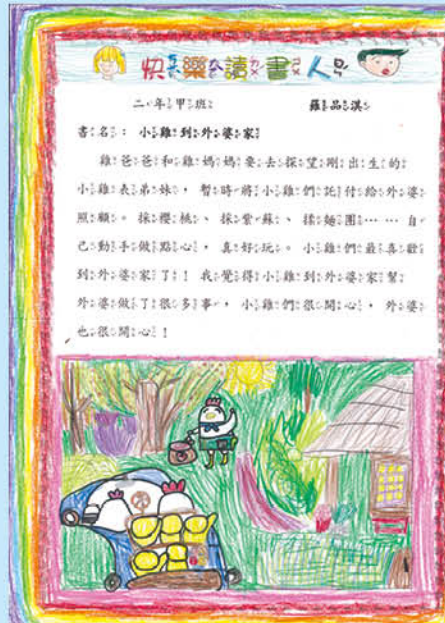 快樂讀書人
二年甲班 羅品淇
書名：小雞到外婆家
雞爸爸和雞媽媽要去探望剛出生的
小雞表弟妹，暫時將小雞們託付給外婆
照顧。採櫻桃、採紫蘇、揉麵團……自
己動手做點心，真好玩。小雞們最喜歡
到外婆家了！我覺得小雞到外婆家幫
外婆做了很多事，小雞們很開心，外婆
也很開心！